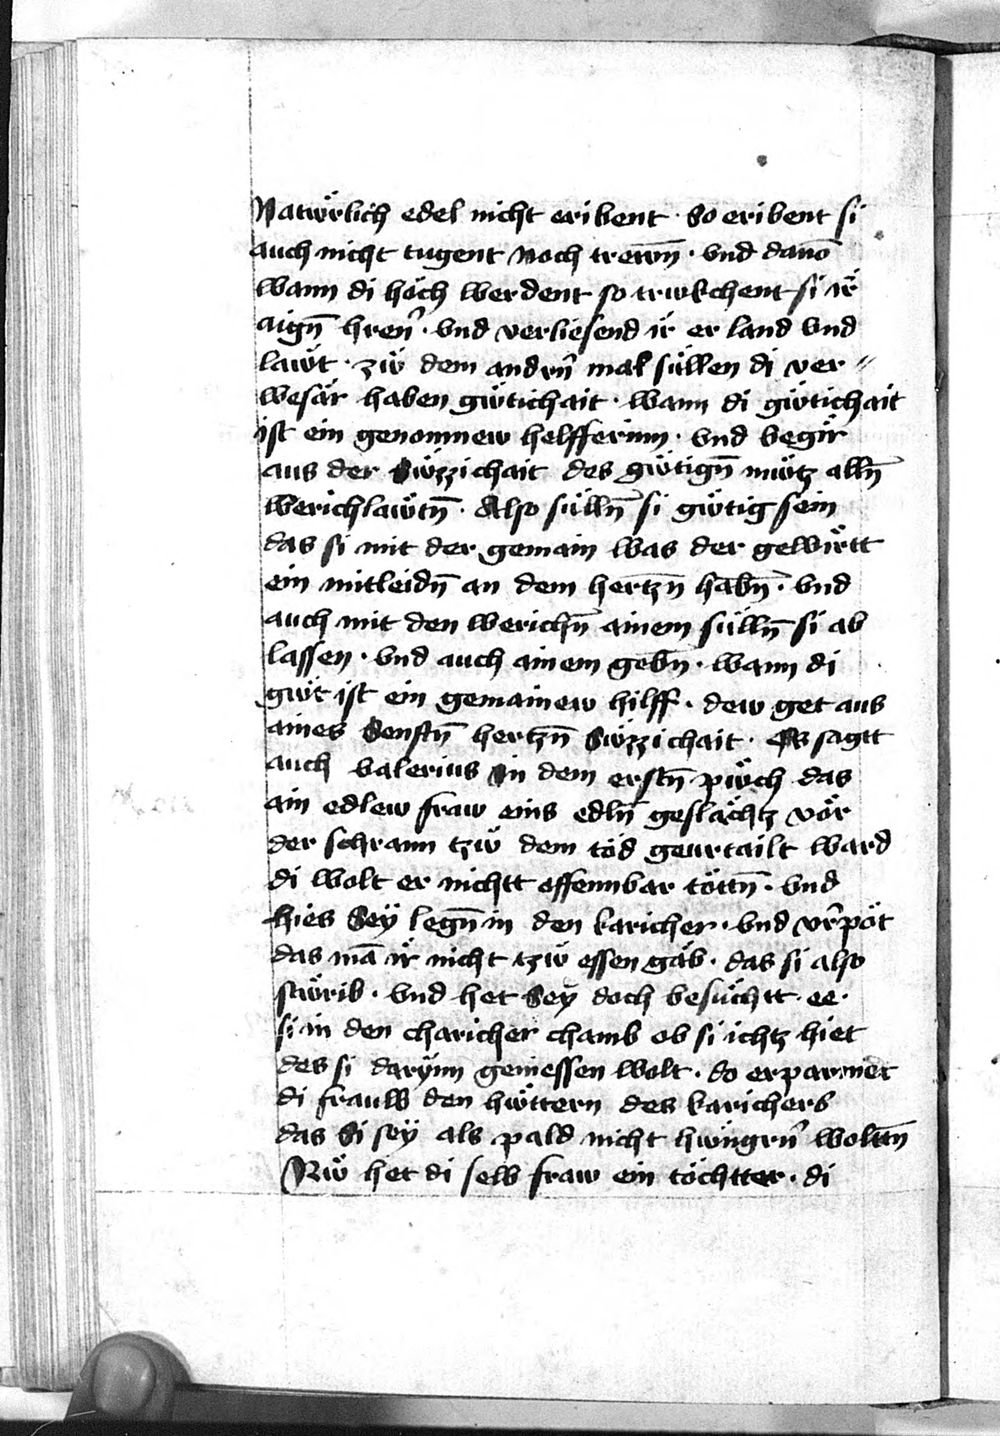 Natwͤrlich edel nicht eribent · So eribent si
auch nicht tugent noch trewn̄ · vnd dauō
wann di hoͤch werdent so trukchent si irͤ
aign̄ hren̄ · vnd verliesend irͤ er land vnd
lawͤt · zwͤ dem andrn̄ mal suͤllen di ver〃
wesaͤr haben gwͤtichait · wann di gwͤtichait
ist ein genomnew helfferinn · vnd begirͤ
aus der Swͤzzichait des gwͤtign̄ mwͤtz alln̄
werichlawͤtn̄ · Also suͤlln̄ si gwͤtig sein
das si mit der gemain was der gewirͤtt
ein mitleidn̄ an dem hertzn̄ habn̄ · vnd
auch mit den werichn̄ ainem suͤlln̄ si ab
lassen · vnd auch ainem gebn̄ · wann di
gwͤt ist ein gemainew hilff · dew get aus
aines Senftn̄ hertzn̄ Swͤzzichait · Es sagtt
auch valerius in dem erstn̄ pwͤch das
ain edlew fraw eins edln̄ geslaͤchtz voͤr
der schrann tzwͤ dem toͤd geurtailt ward
di wolt er nichtt offennbar toͤttn̄ · vnd
hies Seÿ legn̄ in den karicher · vnd vr̄poͤt
das mā irͤ nicht tzwͤ essen gaͤb · das si also
stwͤrib · vnd het Seÿ doch besuͤchtt · ee ·
si in den charicher chamb ob si ichtz hiet
des si darÿnn geniessen wolt · do erparmet
di frauw den hwͤttern des karichers
das Si seÿ als pald nicht hwͤngrn̄ woltn̄
Nwͤ het di selb fraw ein toͤchtter · di